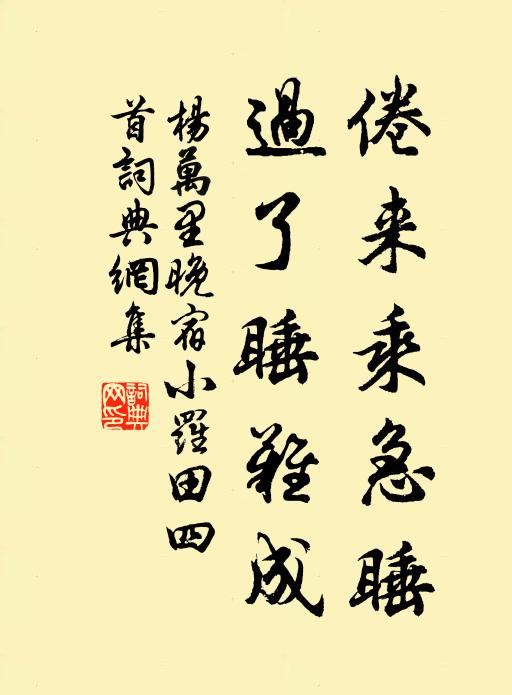 倦来乘急睡
過了睡難成
楊萬里晚宿小羅田四
首詞典網集
詞典
网印